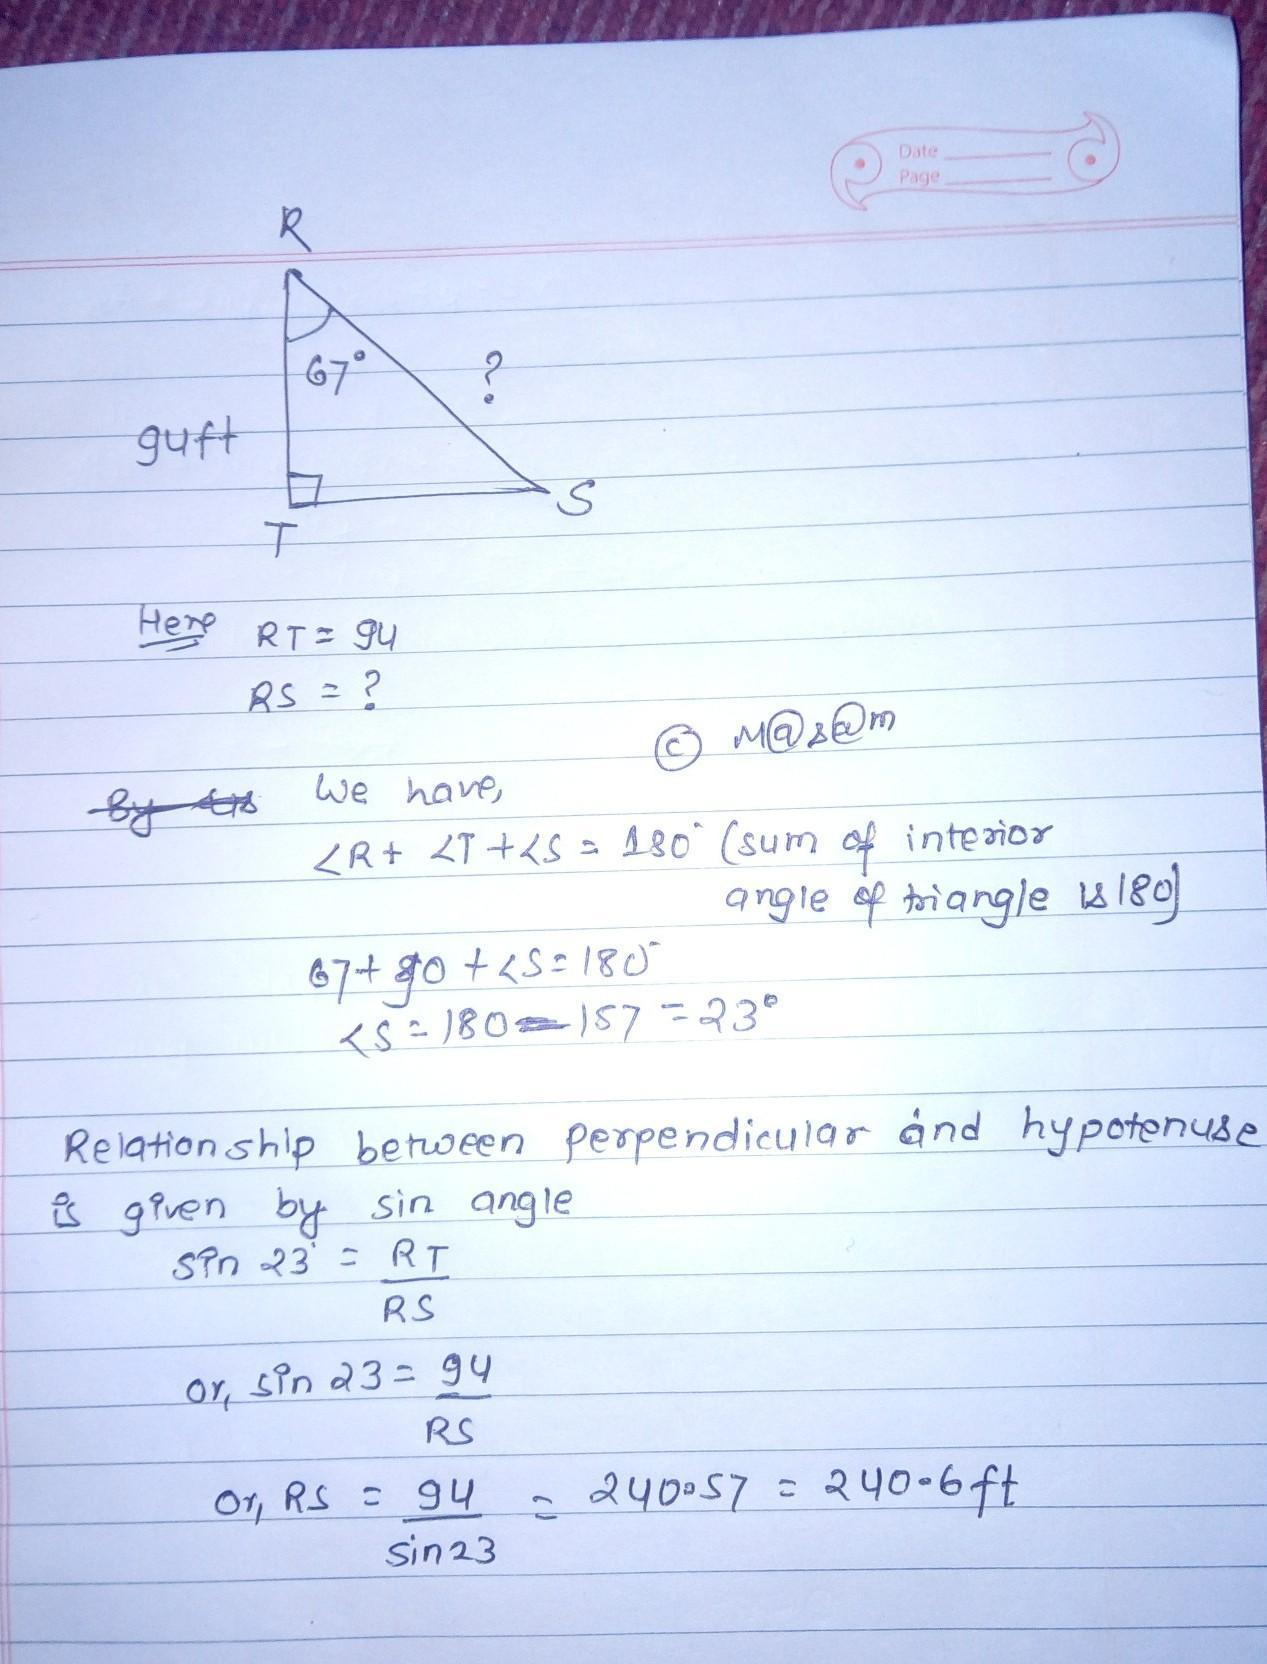 Date
Page
R
67°
?
94ft
S
T
Here RT = 94
RS = ?
© M@s@m
We have,
∠R + ∠T + ∠S = 180° (sum of interior
angle of triangle is 180)
67 + 90 + ∠S = 180°
∠S = 180 - 157 = 23°
Relationship between perpendicular and hypotenuse
is given by sin angle
sin 23° = RT
RS
or, sin 23 = 94
RS
or, RS = 94 = 240.57 = 240.6 ft
sin 23